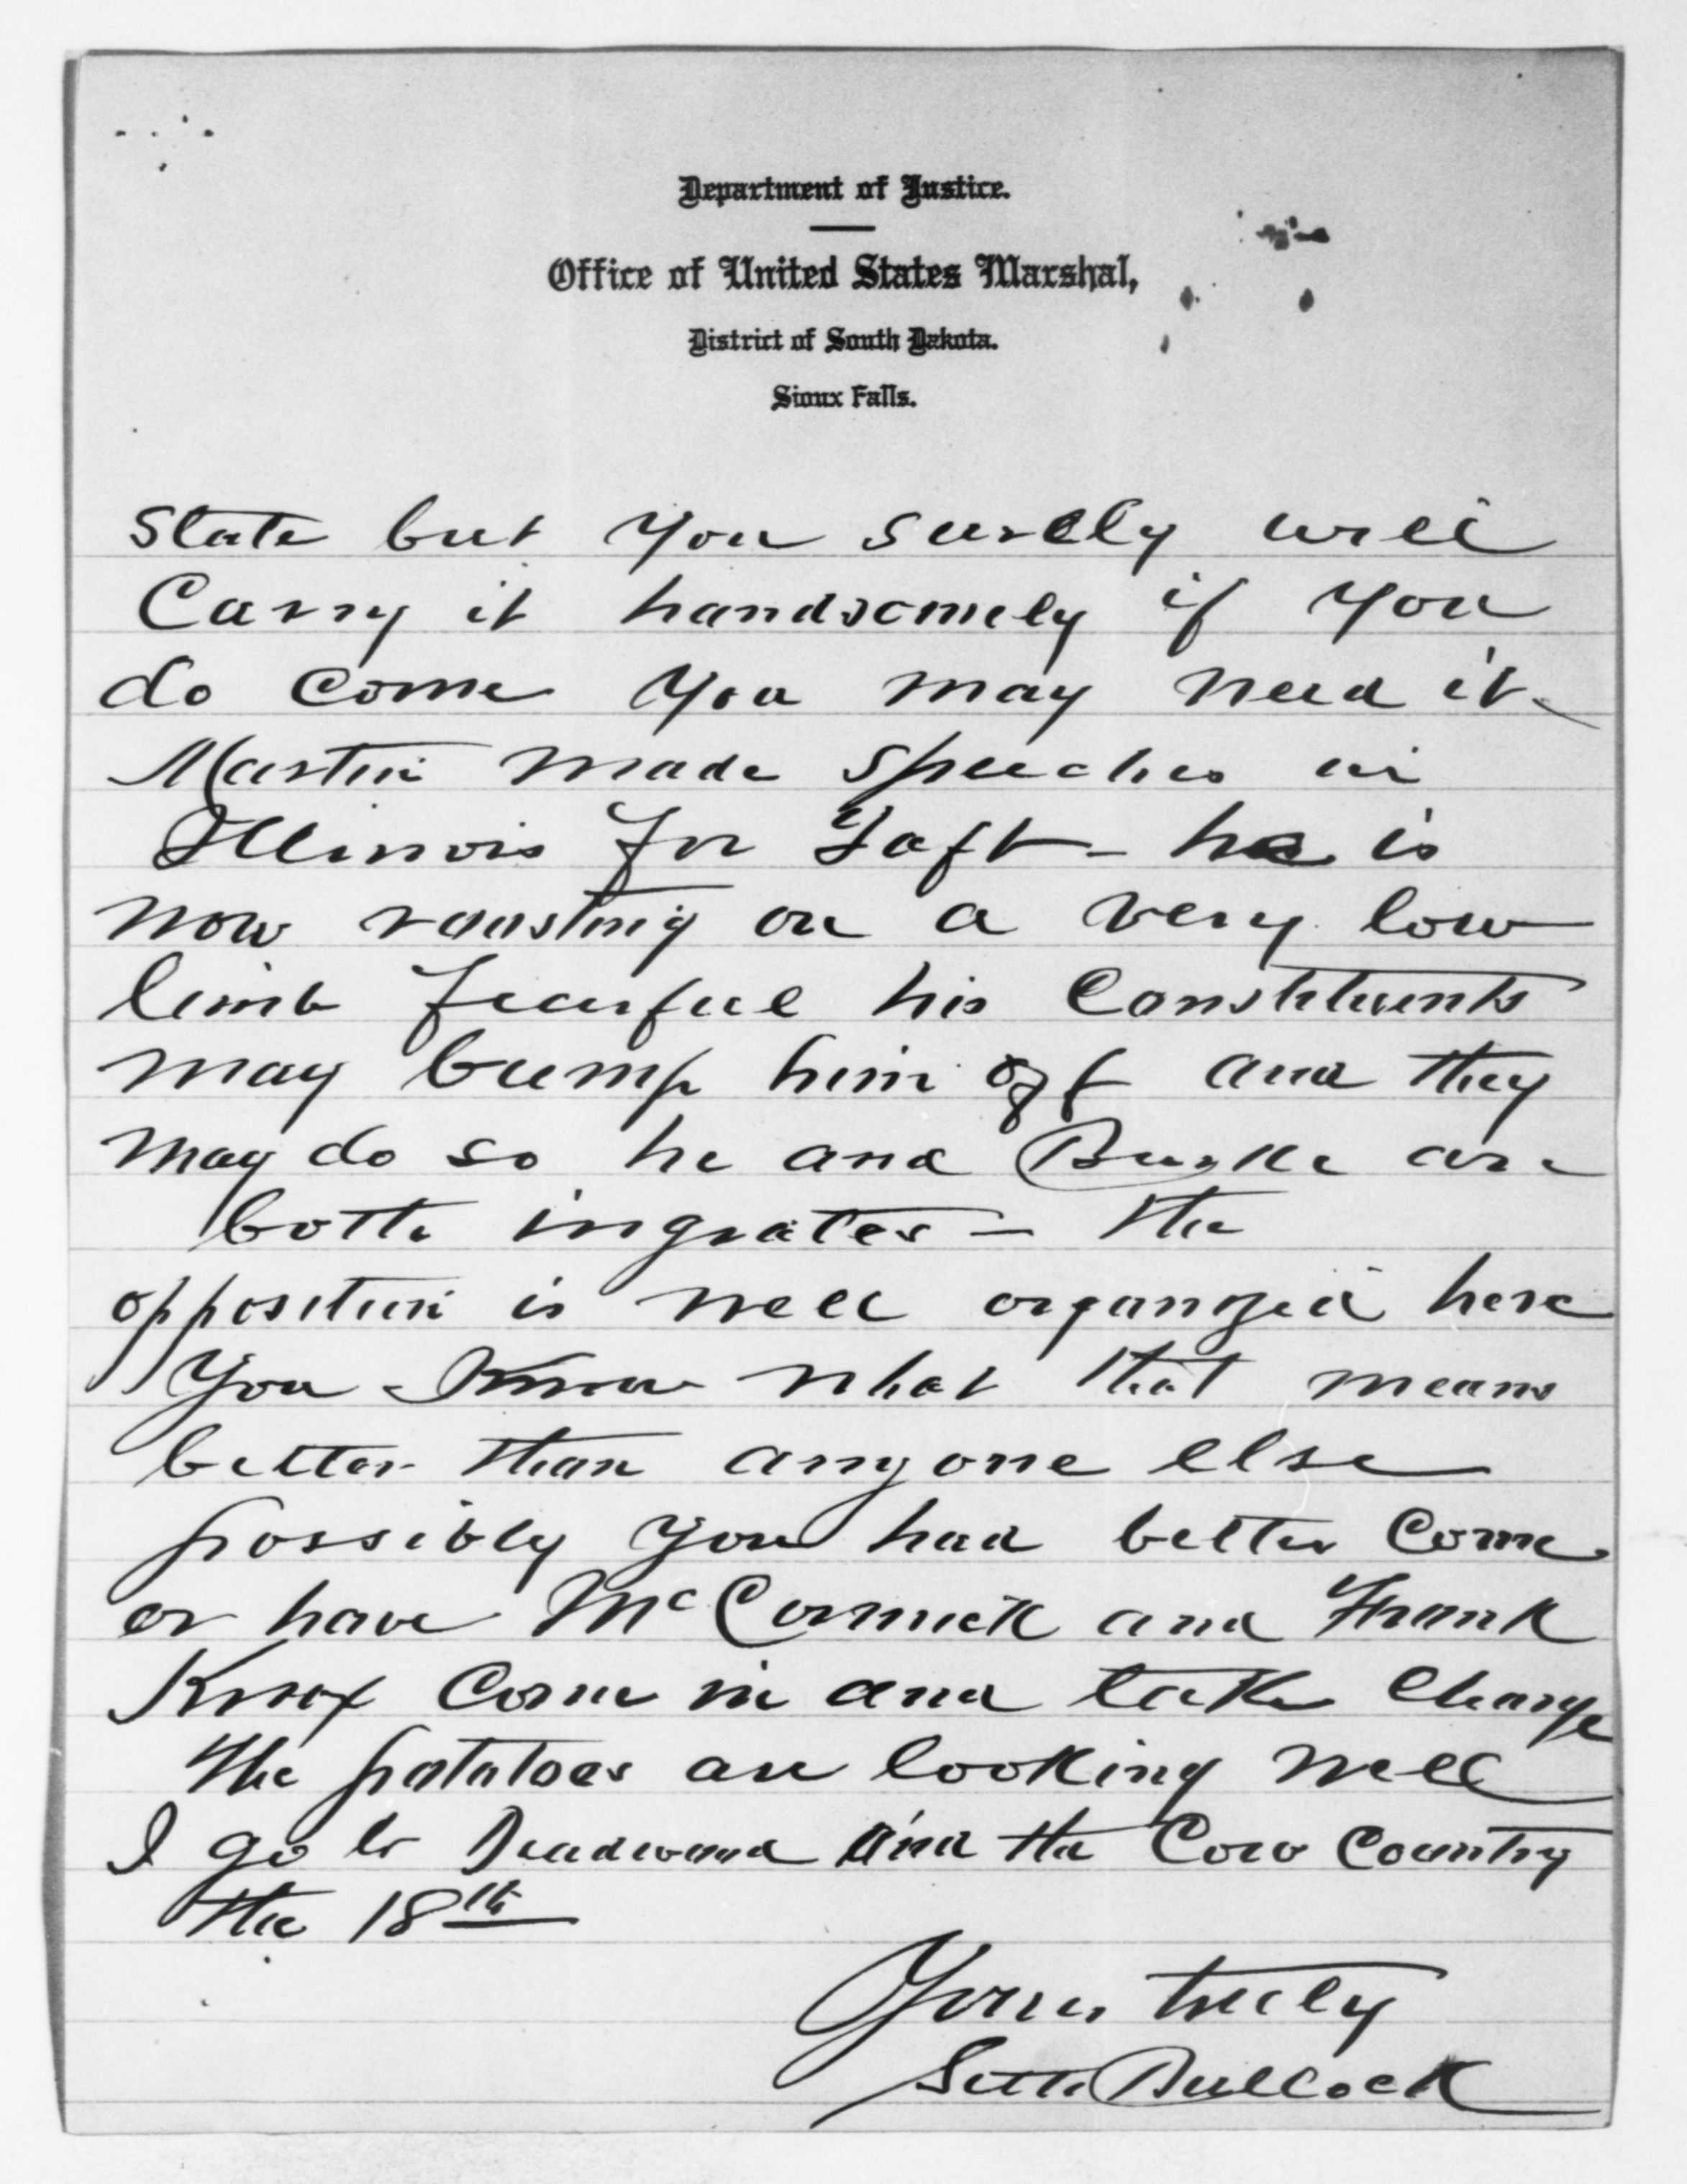 Department of Justice.
Office of United States Marshal,
District of South Dakota.
Sioux Falls.
State but you surely will
Carry it handsomely if you
do come you may need it
Martin made speeches in
Illinois for Taft - he is
now roosting on a very low
limb fearful his Constituents
may bump him off and they
may do so he and Burke are
both ingrates - the
opposition is well organized here
You know what that means
better than anyone else
possibly you had better come
or have McCormick and Frank
Knox come in and take charge
The potatoes are looking well
I go to Deadwood and the Cow Country
the 18th
Yours truly
Seth Bullock